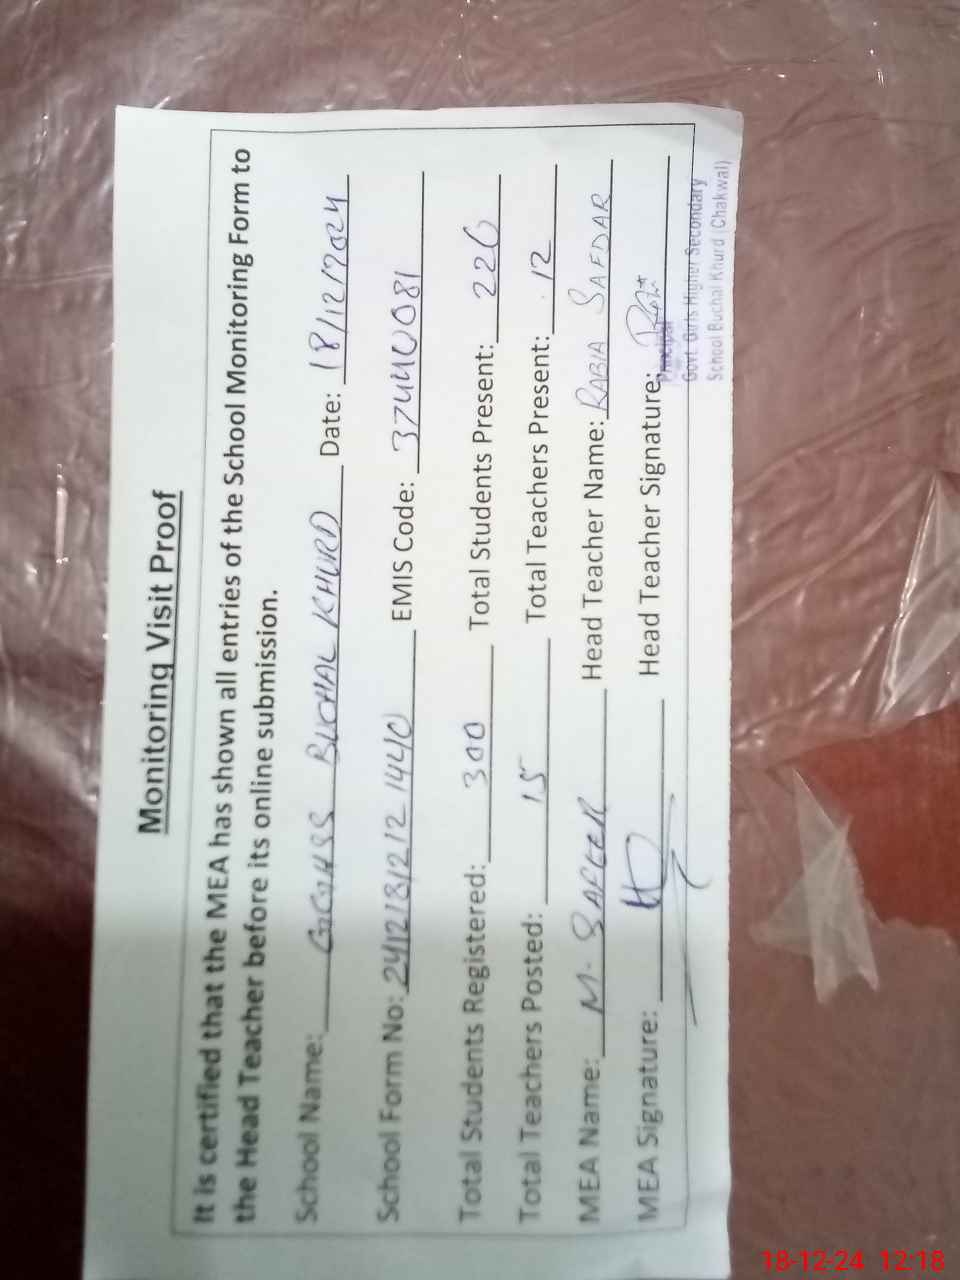 Monitoring Visit Proof
It is certified that the MEA has shown all entries of the School Monitoring Form to
the Head Teacher before its online submission.
School Name: GGHSS BUCHAL KHURD Date: 18/12/2024
School Form No: 2412181212 1440 EMIS Code: 37440081
Total Students Registered: 300 Total Students Present: 226
Total Teachers Posted: 15 Total Teachers Present: 12
MEA Name: M. SAFEER Head Teacher Name: RABIA SAFDAR
MEA Signature: Head Teacher Signature:
Principal
Govt. Girls Higher Secondary
School Buchal Khurd (Chakwal)
18-12-24 12:18